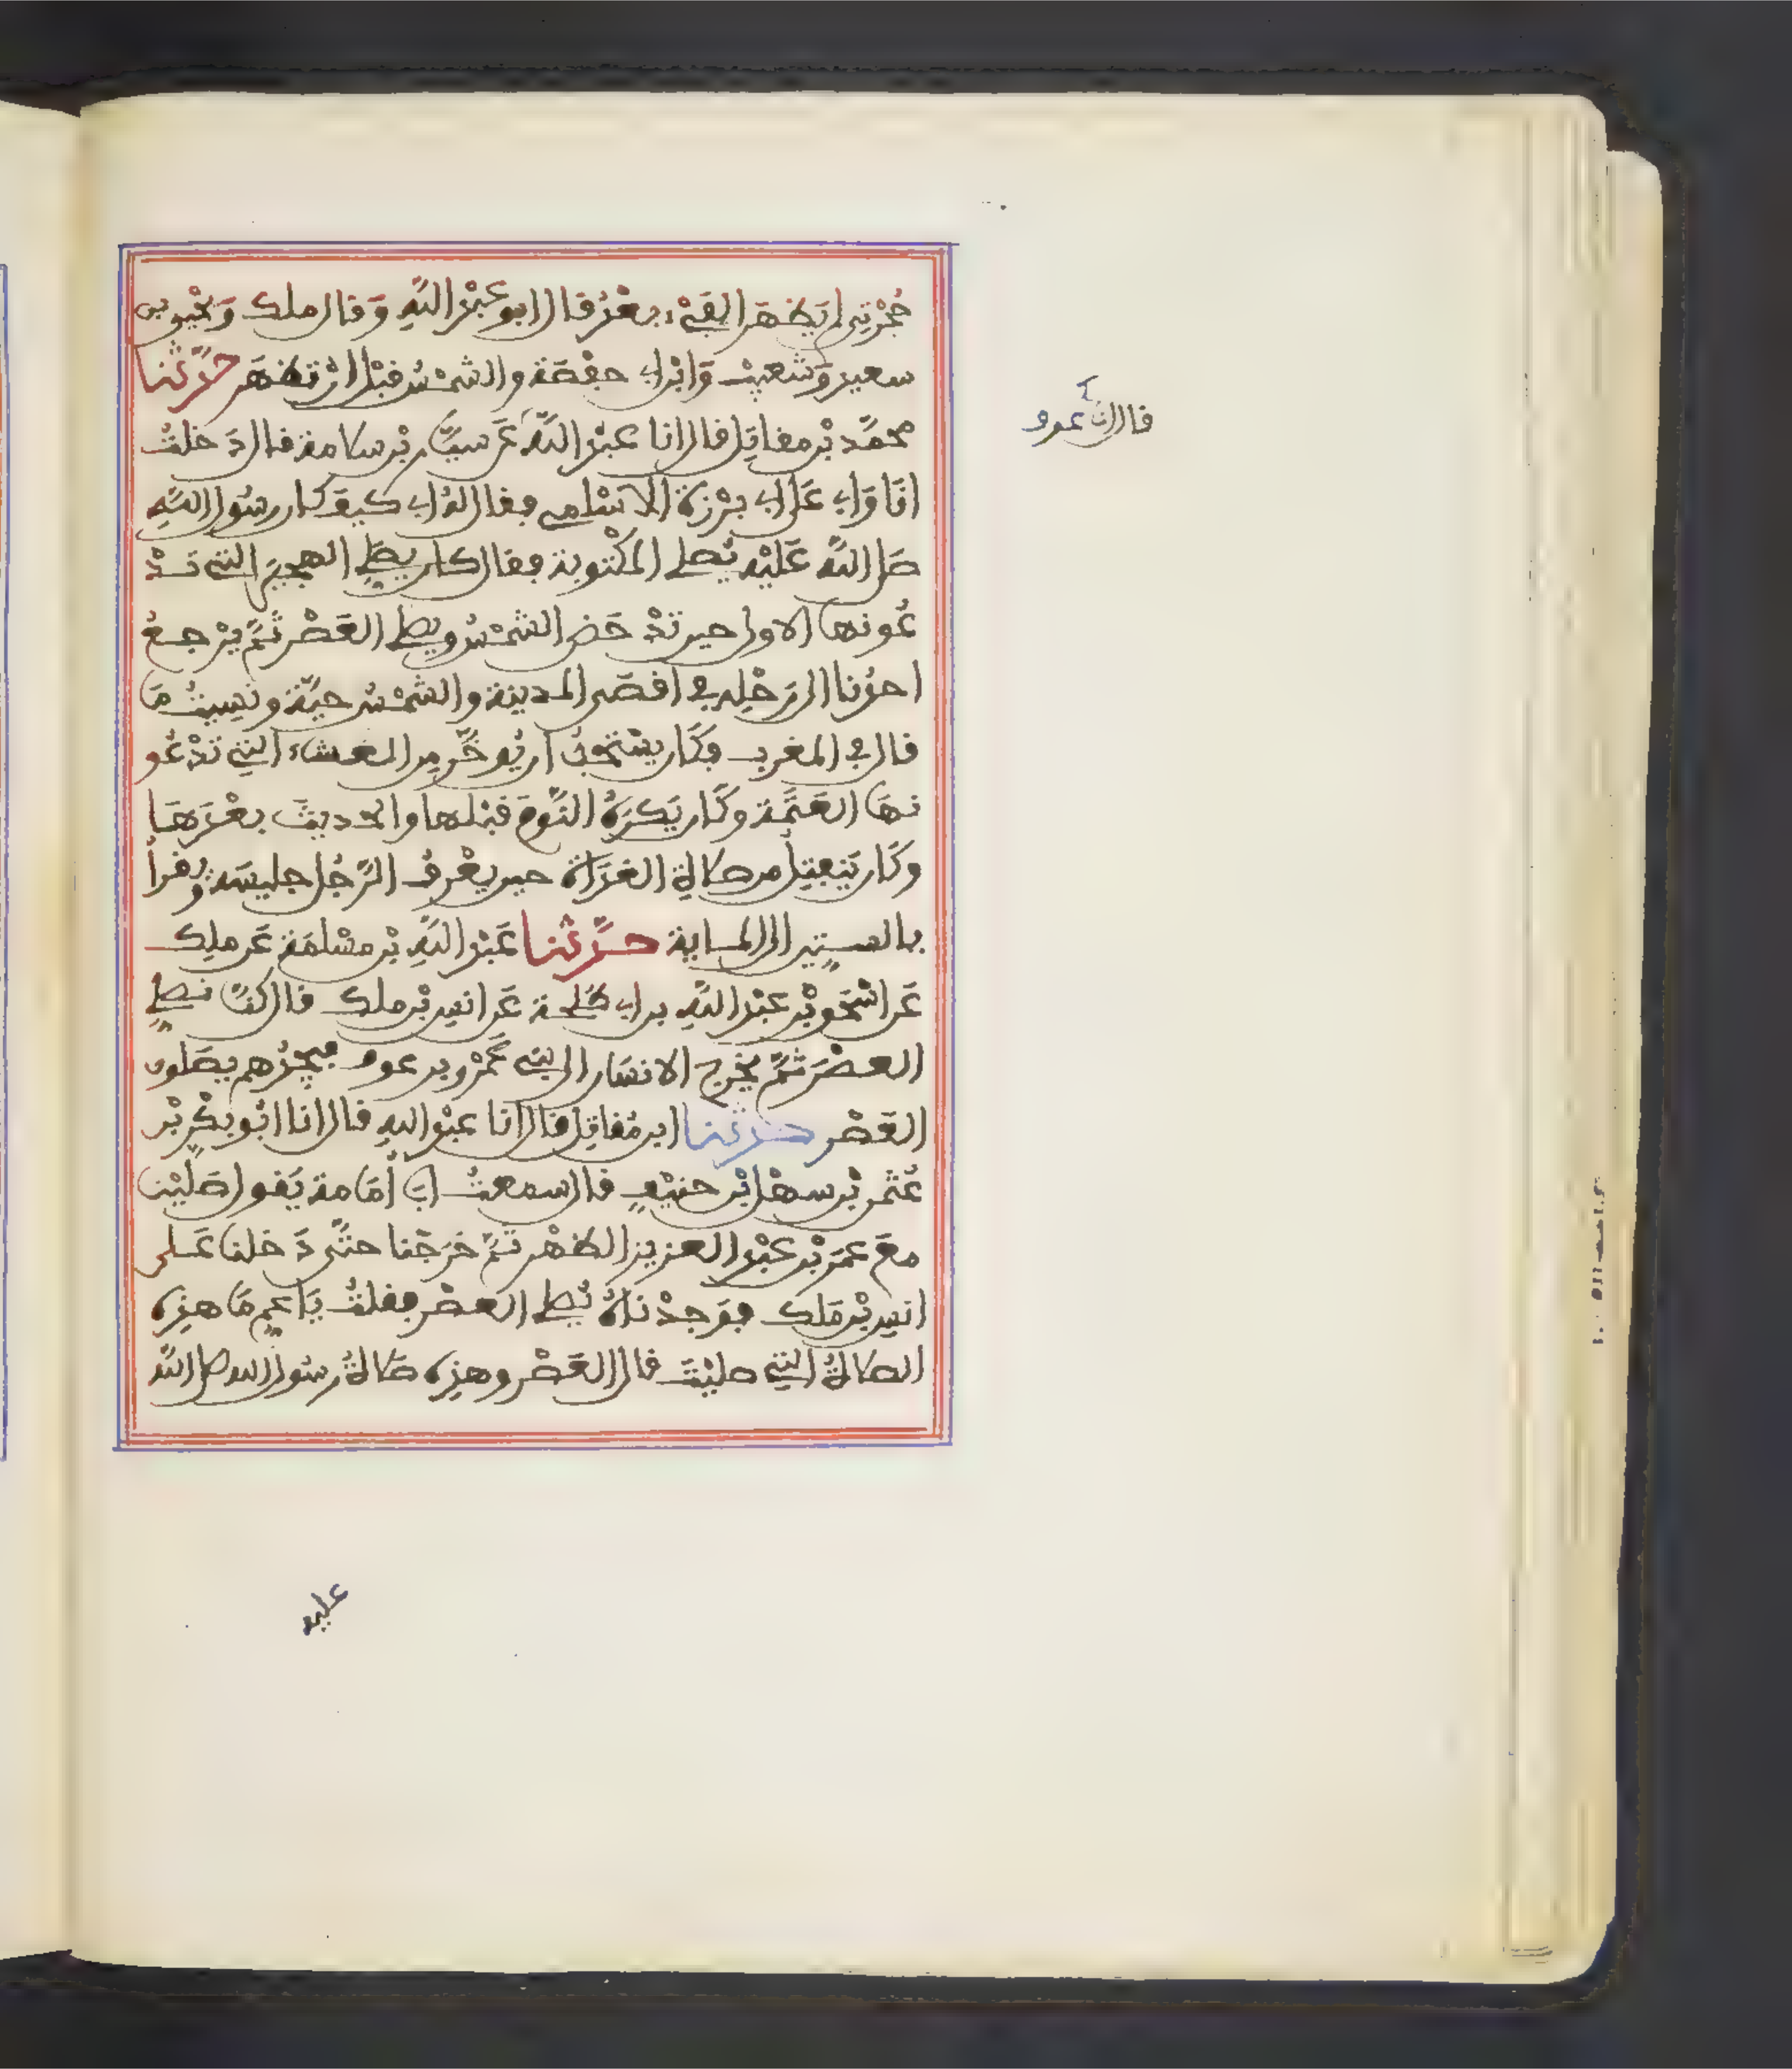 حُجْرَتِي لم يَظهَر الفَيْءُ بعْدُ قال ابو عبْدِ اللَّهِ وَقال ملك وَيَحْيى بن
سعيد وَشعيبٌ وَابْن ابي حفْصَة والشمْسُ قبْل انْ تظهَر حَدَّثنا
محمَّد بْن مقاتِل قال انا عبْد اللَّهِ عَن سيَّار بْن سلامة قال دَخلتُ
انَا وَابي عَلى ابي بَرْزة الاسْلمي فقال لهُ ابي كيفَ كان رسُول اللَّهِ
صَلى اللَّه عَليْهِ يُصلي المكْتوبة فقال كان يصَلي الهجيرَ التي تَدْ
عُونهَا الاولى حين تدْحَض الشمْسُ ويصلي العَصْر ثُمَّ يَرْجعُ
احدُنا الى رَحْلِهِ في اقصَى المدينة والشمْسُ حيَّة ونَسِيتُ مَا
قال في المغرب وكَان يسْتحِبُّ ان يُوخَّر مِن العشاء التِي تدْعُو
نهَا العَتَمَة وكَان يَكرَهُ النَّوْمَ قبْلها والحديثَ بعْدَهَا
وكَان يَنفتِلُ من صلاة الغدَاة حين يعْرفُ الرَّجُل جليسَهُ وَيقرأُ
بالستِّين الى الماية حدَّثنا عَبْد اللَّهِ بْن مسْلمَة عَن ملِك
عَن اسْحَق بْن عبْد اللَّهِ بن ابي طلحة عَن انس بْن ملك قال كنَّا نصَلي
العصْرَ ثمَّ يخْرج الانسَان الى بني عَمْرو بن عوف فيجدُهم يصَلون
العَصْر حدثنا ابن مُقاتِل قال انا عبْد اللهِ قال انا ابُو بكْر بْن
عُثمن بْن سهْل بْن حنيْفٍ قال سمعتُ ابَا أُمَامة يَقول صَلَّيْنا
معَ عمَرَ بْن عبْد العزيز الظهْر ثمَّ خرَجْنا حتَّى دَخلنا عَلى
انس بْن مَلك فوَجدْناهُ يُصلي العصْر فقلتُ يَا عمِّ مَا هذِه
الصلاةُ التي صليْتَ قال العَصْر وهذِه صَلاةُ رسُول الله صلى اللَّه
قال انا عوف
عليه